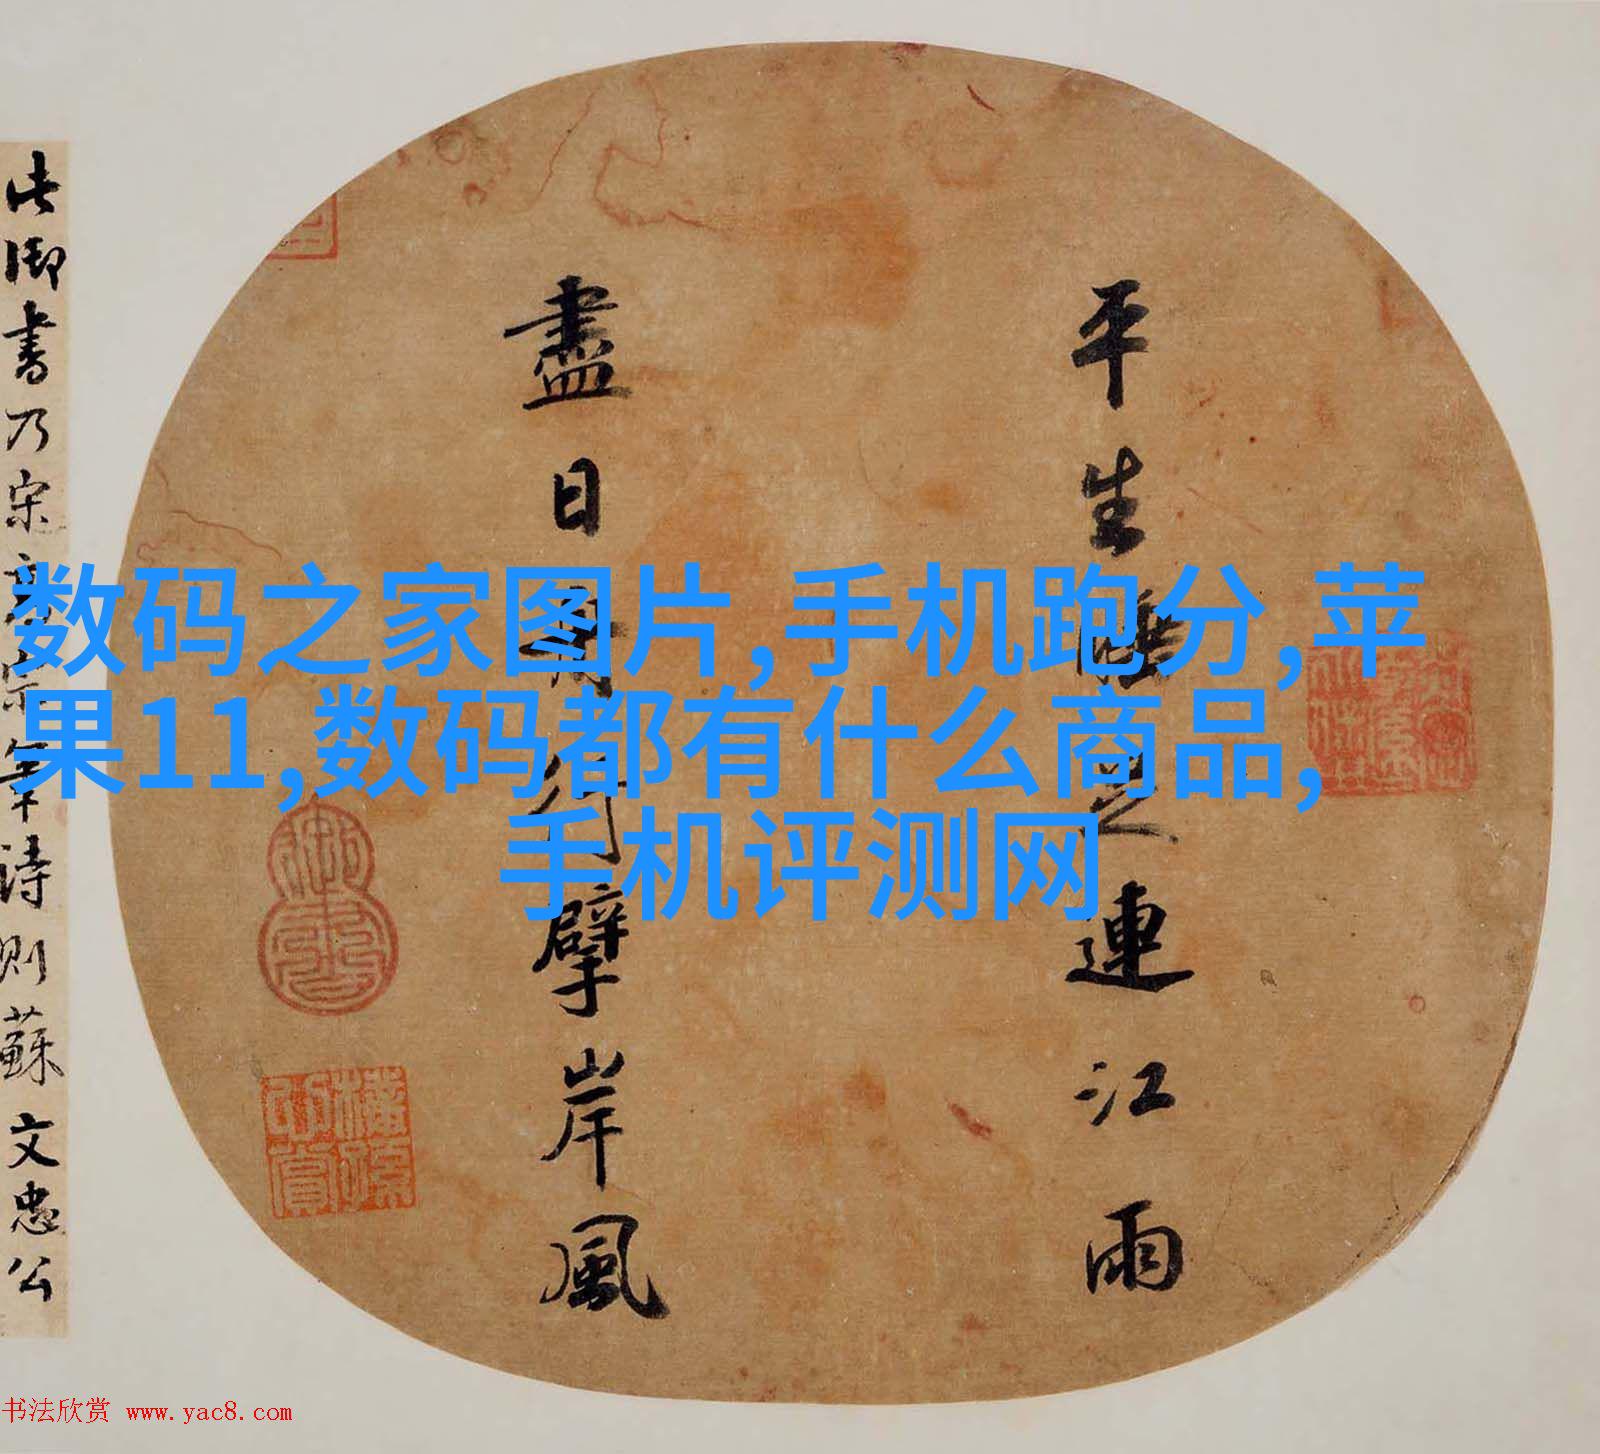 平生連江雨
盡日擘岸風
此御書乃宋高宗筆詩則蘇文忠公
数码之家图片,手机跑分,苹
果11,数码都有什么商品,
手机评测网
书法欣赏 www.yac8.com